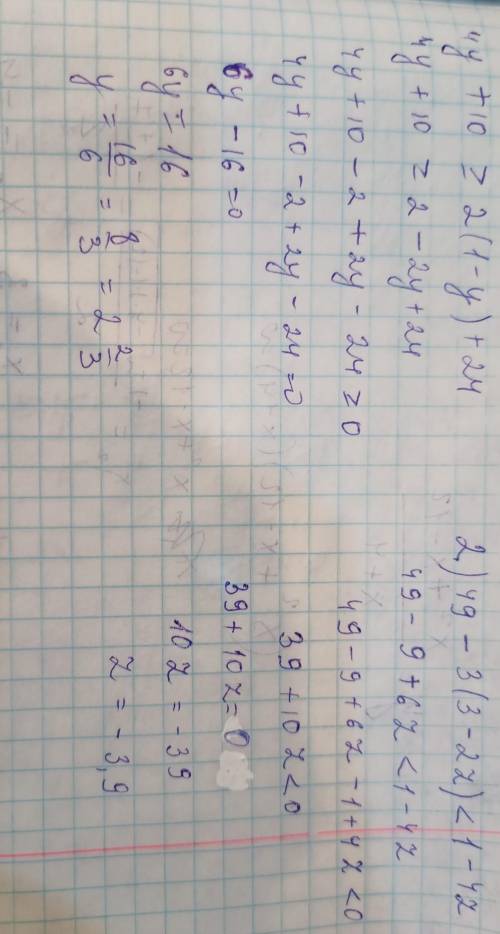 4y + 10 ≥ 2(1-y) + 24
4y + 10 ≥ 2 - 2y + 24
4y + 10 - 2 + 2y - 24 ≥ 0
4y + 10 - 2 + 2y - 24 = 0
6y - 16 = 0
6y = 16
y = 16/6 = 8/3 = 2 2/3
2) 49 - 3(3-2z) < 1 - 4z
49 - 9 + 6z < 1 - 4z
49 - 9 + 6z - 1 + 4z < 0
39 + 10z < 0
39 + 10z = 0
10z = -39
z = -3,9